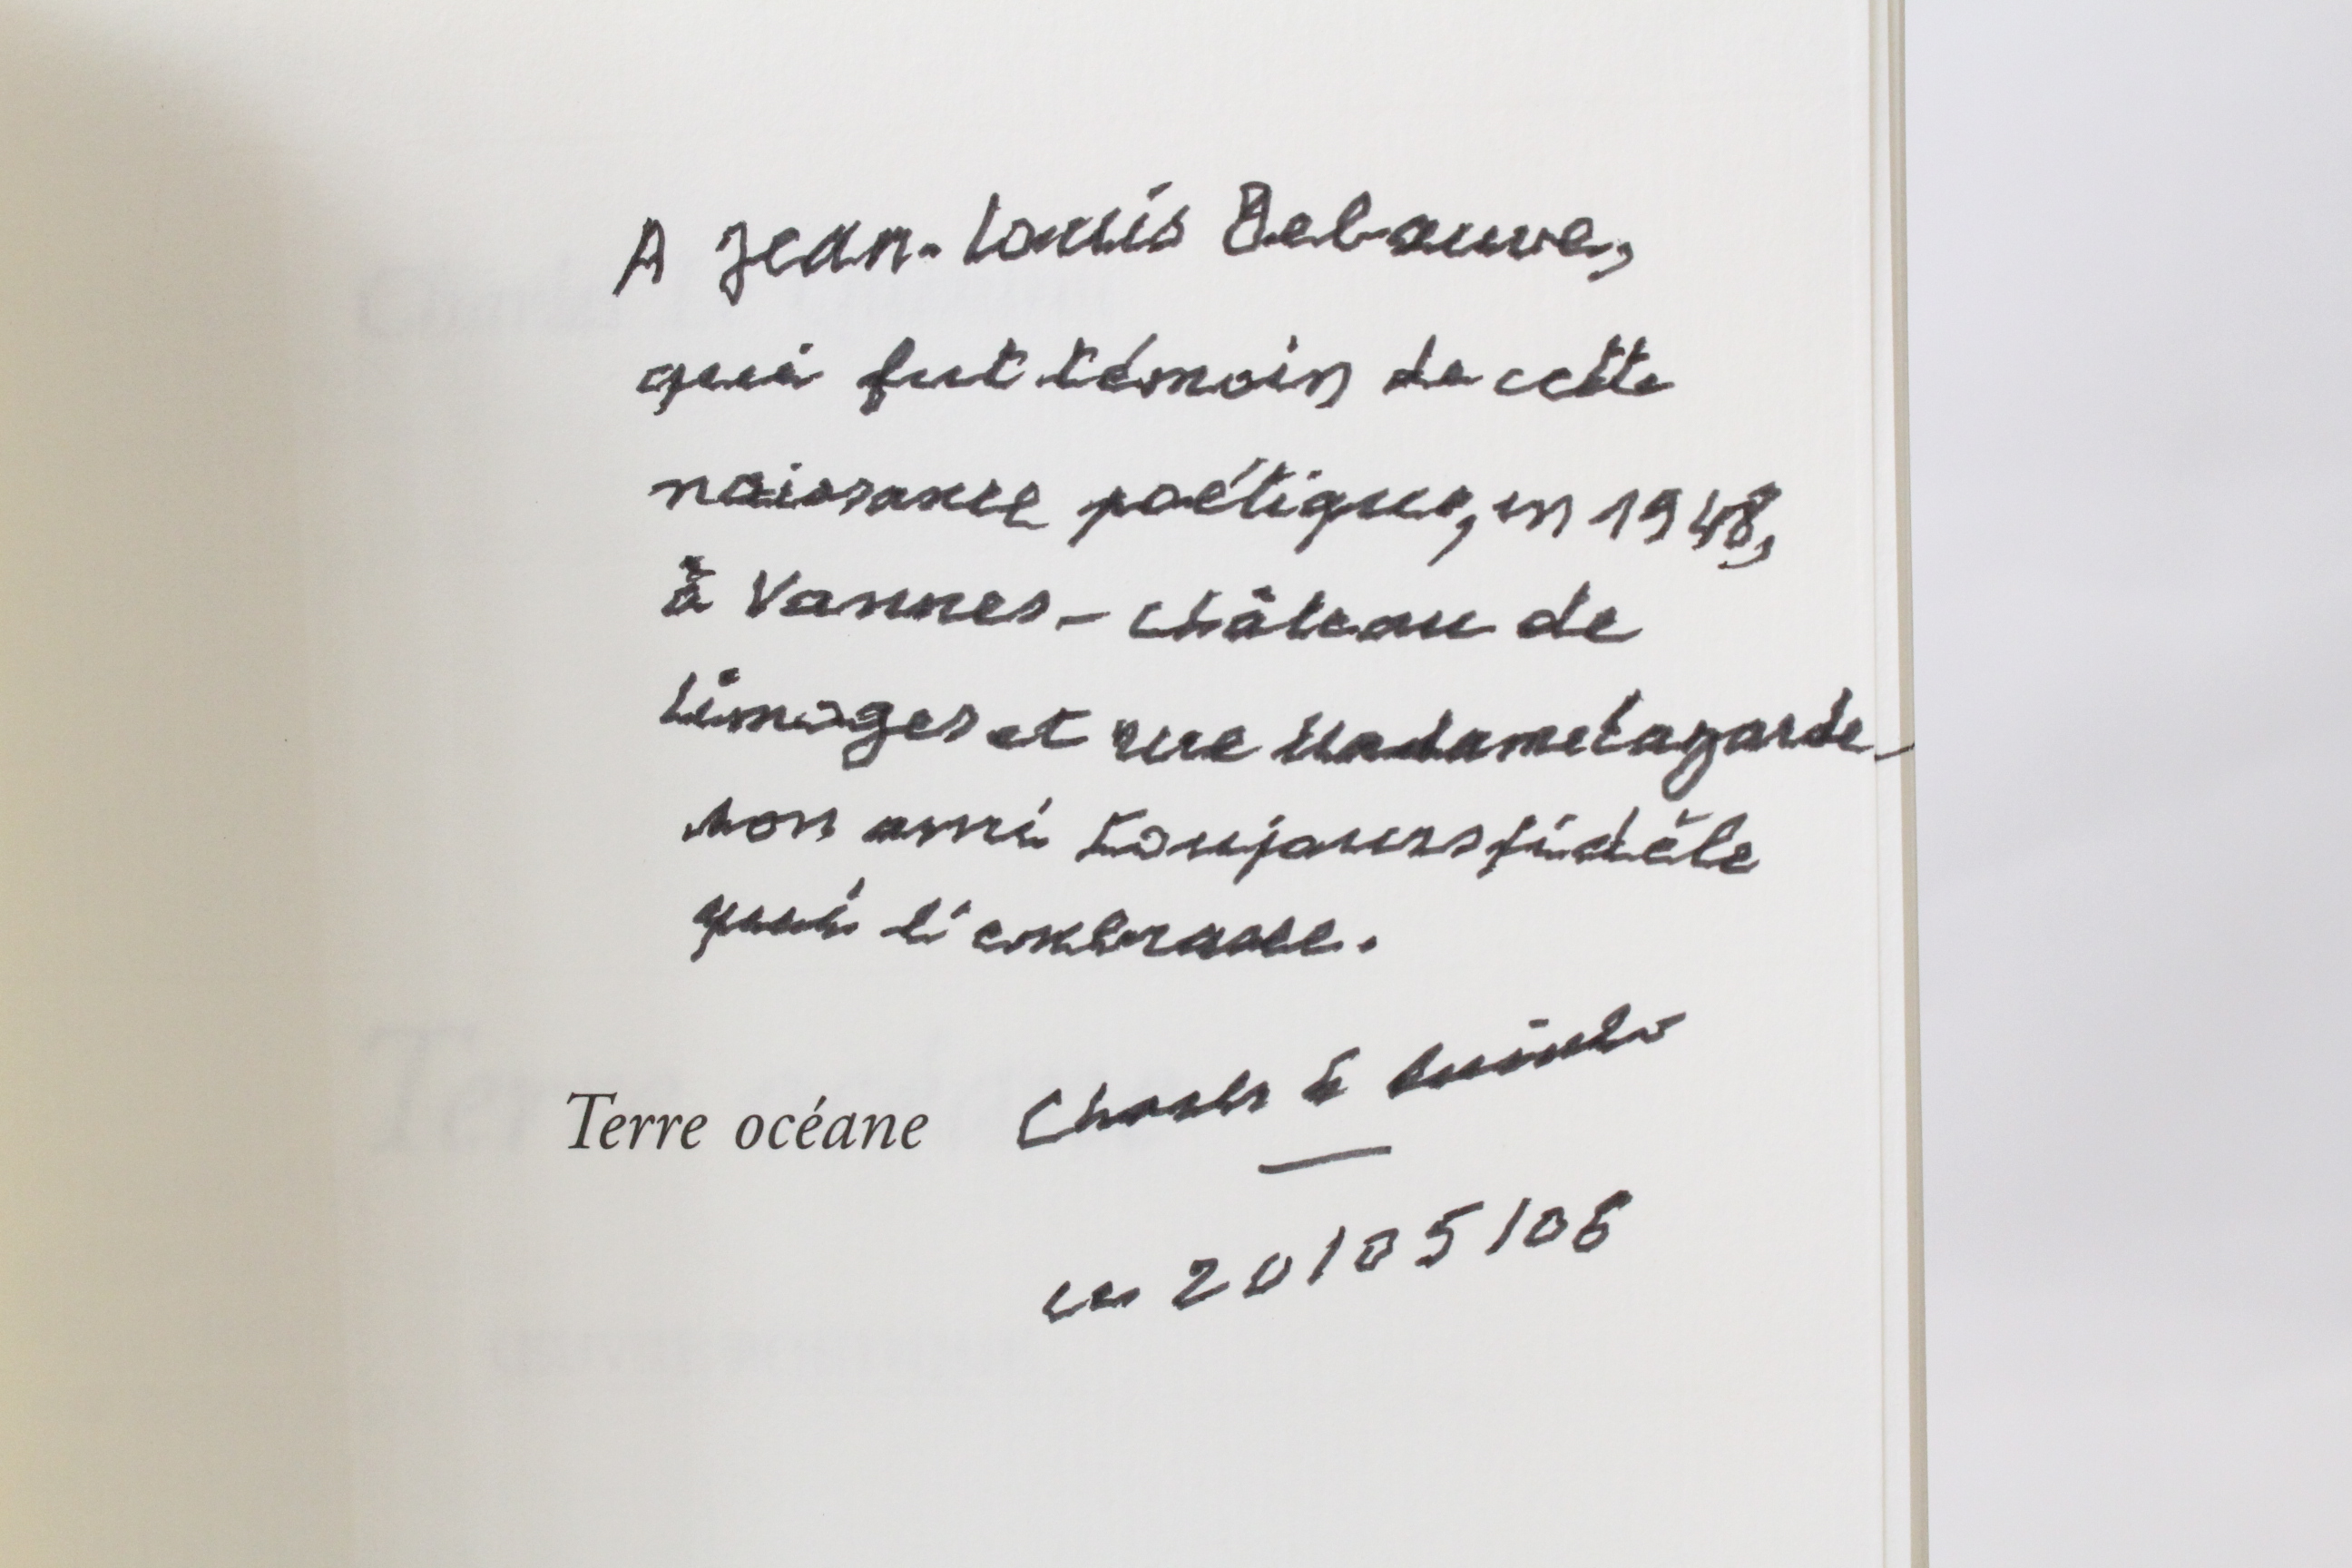 A Jean-Louis Debauve,
qui fut témoin de cette
naissance poétique, en 1948,
à Vannes - château de
Limoges et rue Madame Lagarde -
son ami toujours fidèle
qui l'embrasse.
Charles Le Quintrec
Terre océane
ce 20/05/06